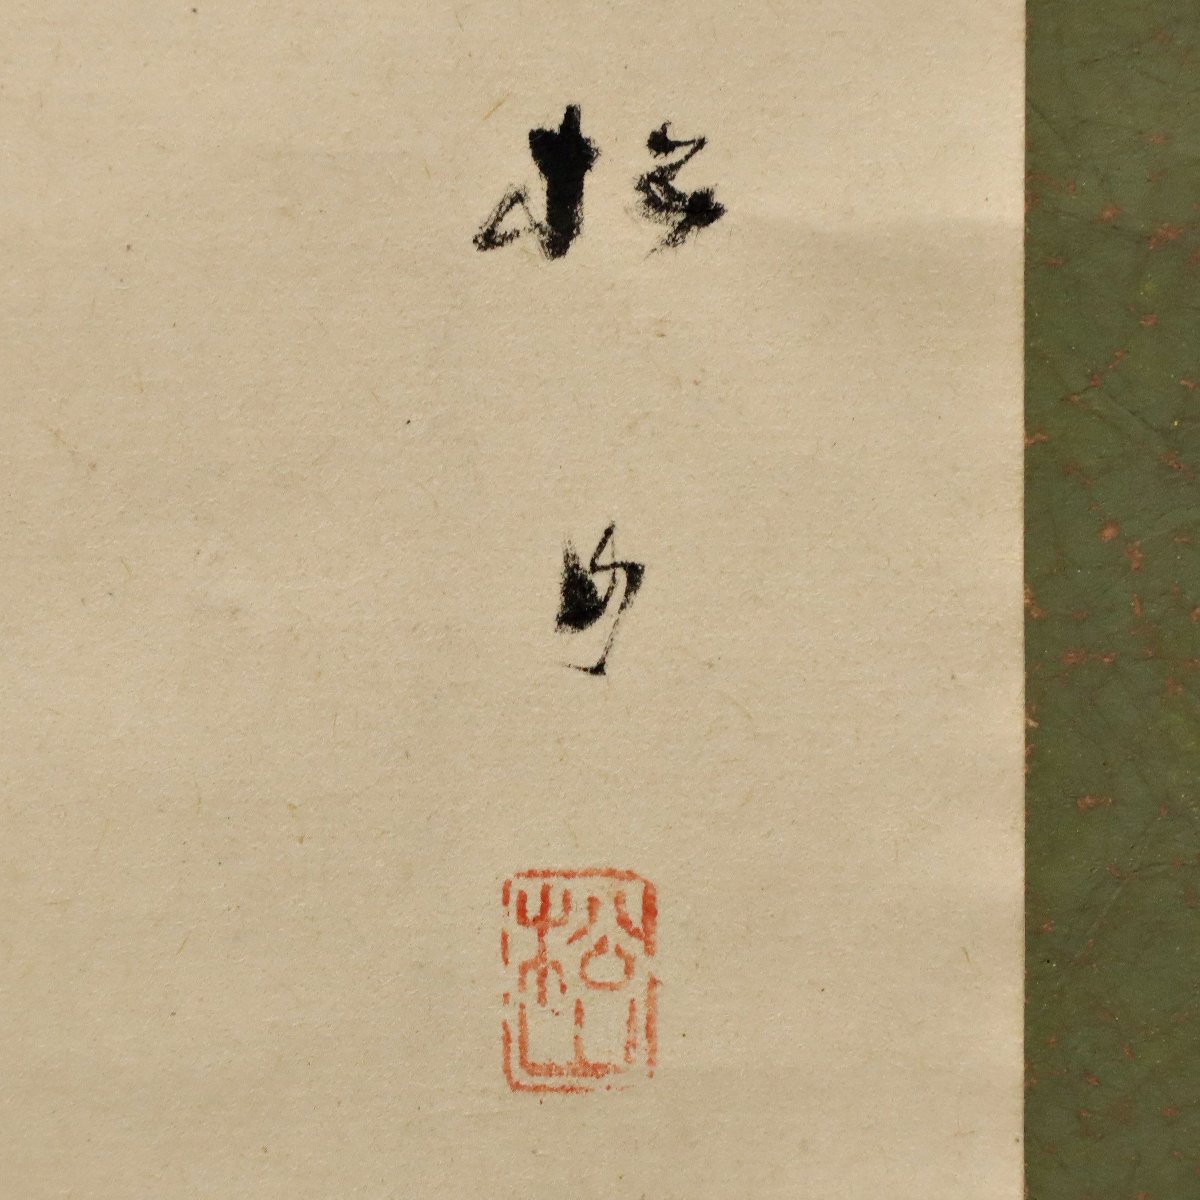 松山
松山